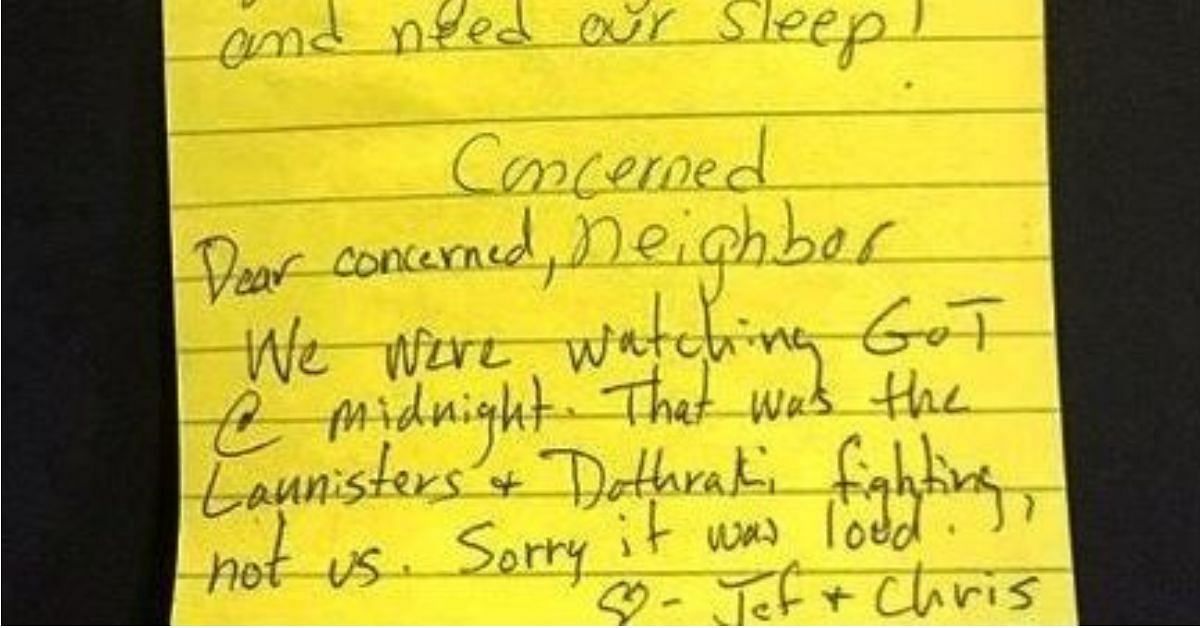 and need our sleep!
Concerned
neighbor
Dear concerned,
We were watching GoT
@ midnight. That was the
Lannisters + Dothraki fighting,
not us. Sorry it was loud.
♡- Jef + Chris